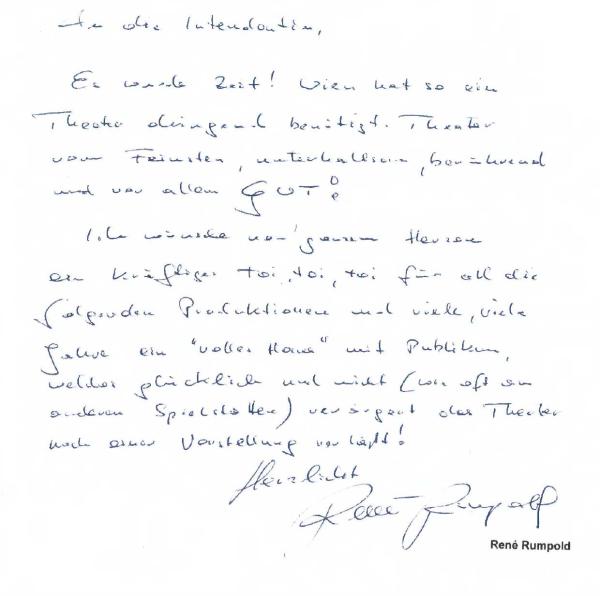 An die Intendantin,
Es wurde Zeit! Wien hat so ein
Theater dringend benötigt. Theater
vom Feinsten, unterhaltsam, berührend
und vor allem GUT!
Ich wünsche von ganzem Herzen
ein kräftiges toi, toi, toi für all die
folgenden Produktionen und viele, viele
Jahre ein "volles Haus" mit Publikum,
welches glücklich und nicht (wie oft an
anderen Spielstätten) verärgert das Theater
nach einer Vorstellung verläßt!
Herzlichst
René Rumpold
René Rumpold